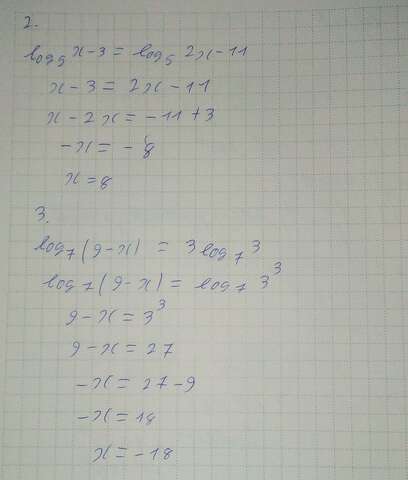 2.
log₅ x-3 = log₅ 2x-11
x-3 = 2x-11
x-2x = -11+3
-x = -8
x = 8
3.
log₇(9-x) = 3log₇3
log₇(9-x) = log₇3³
9-x = 3³
9-x = 27
-x = 27-9
-x = 18
x = -18